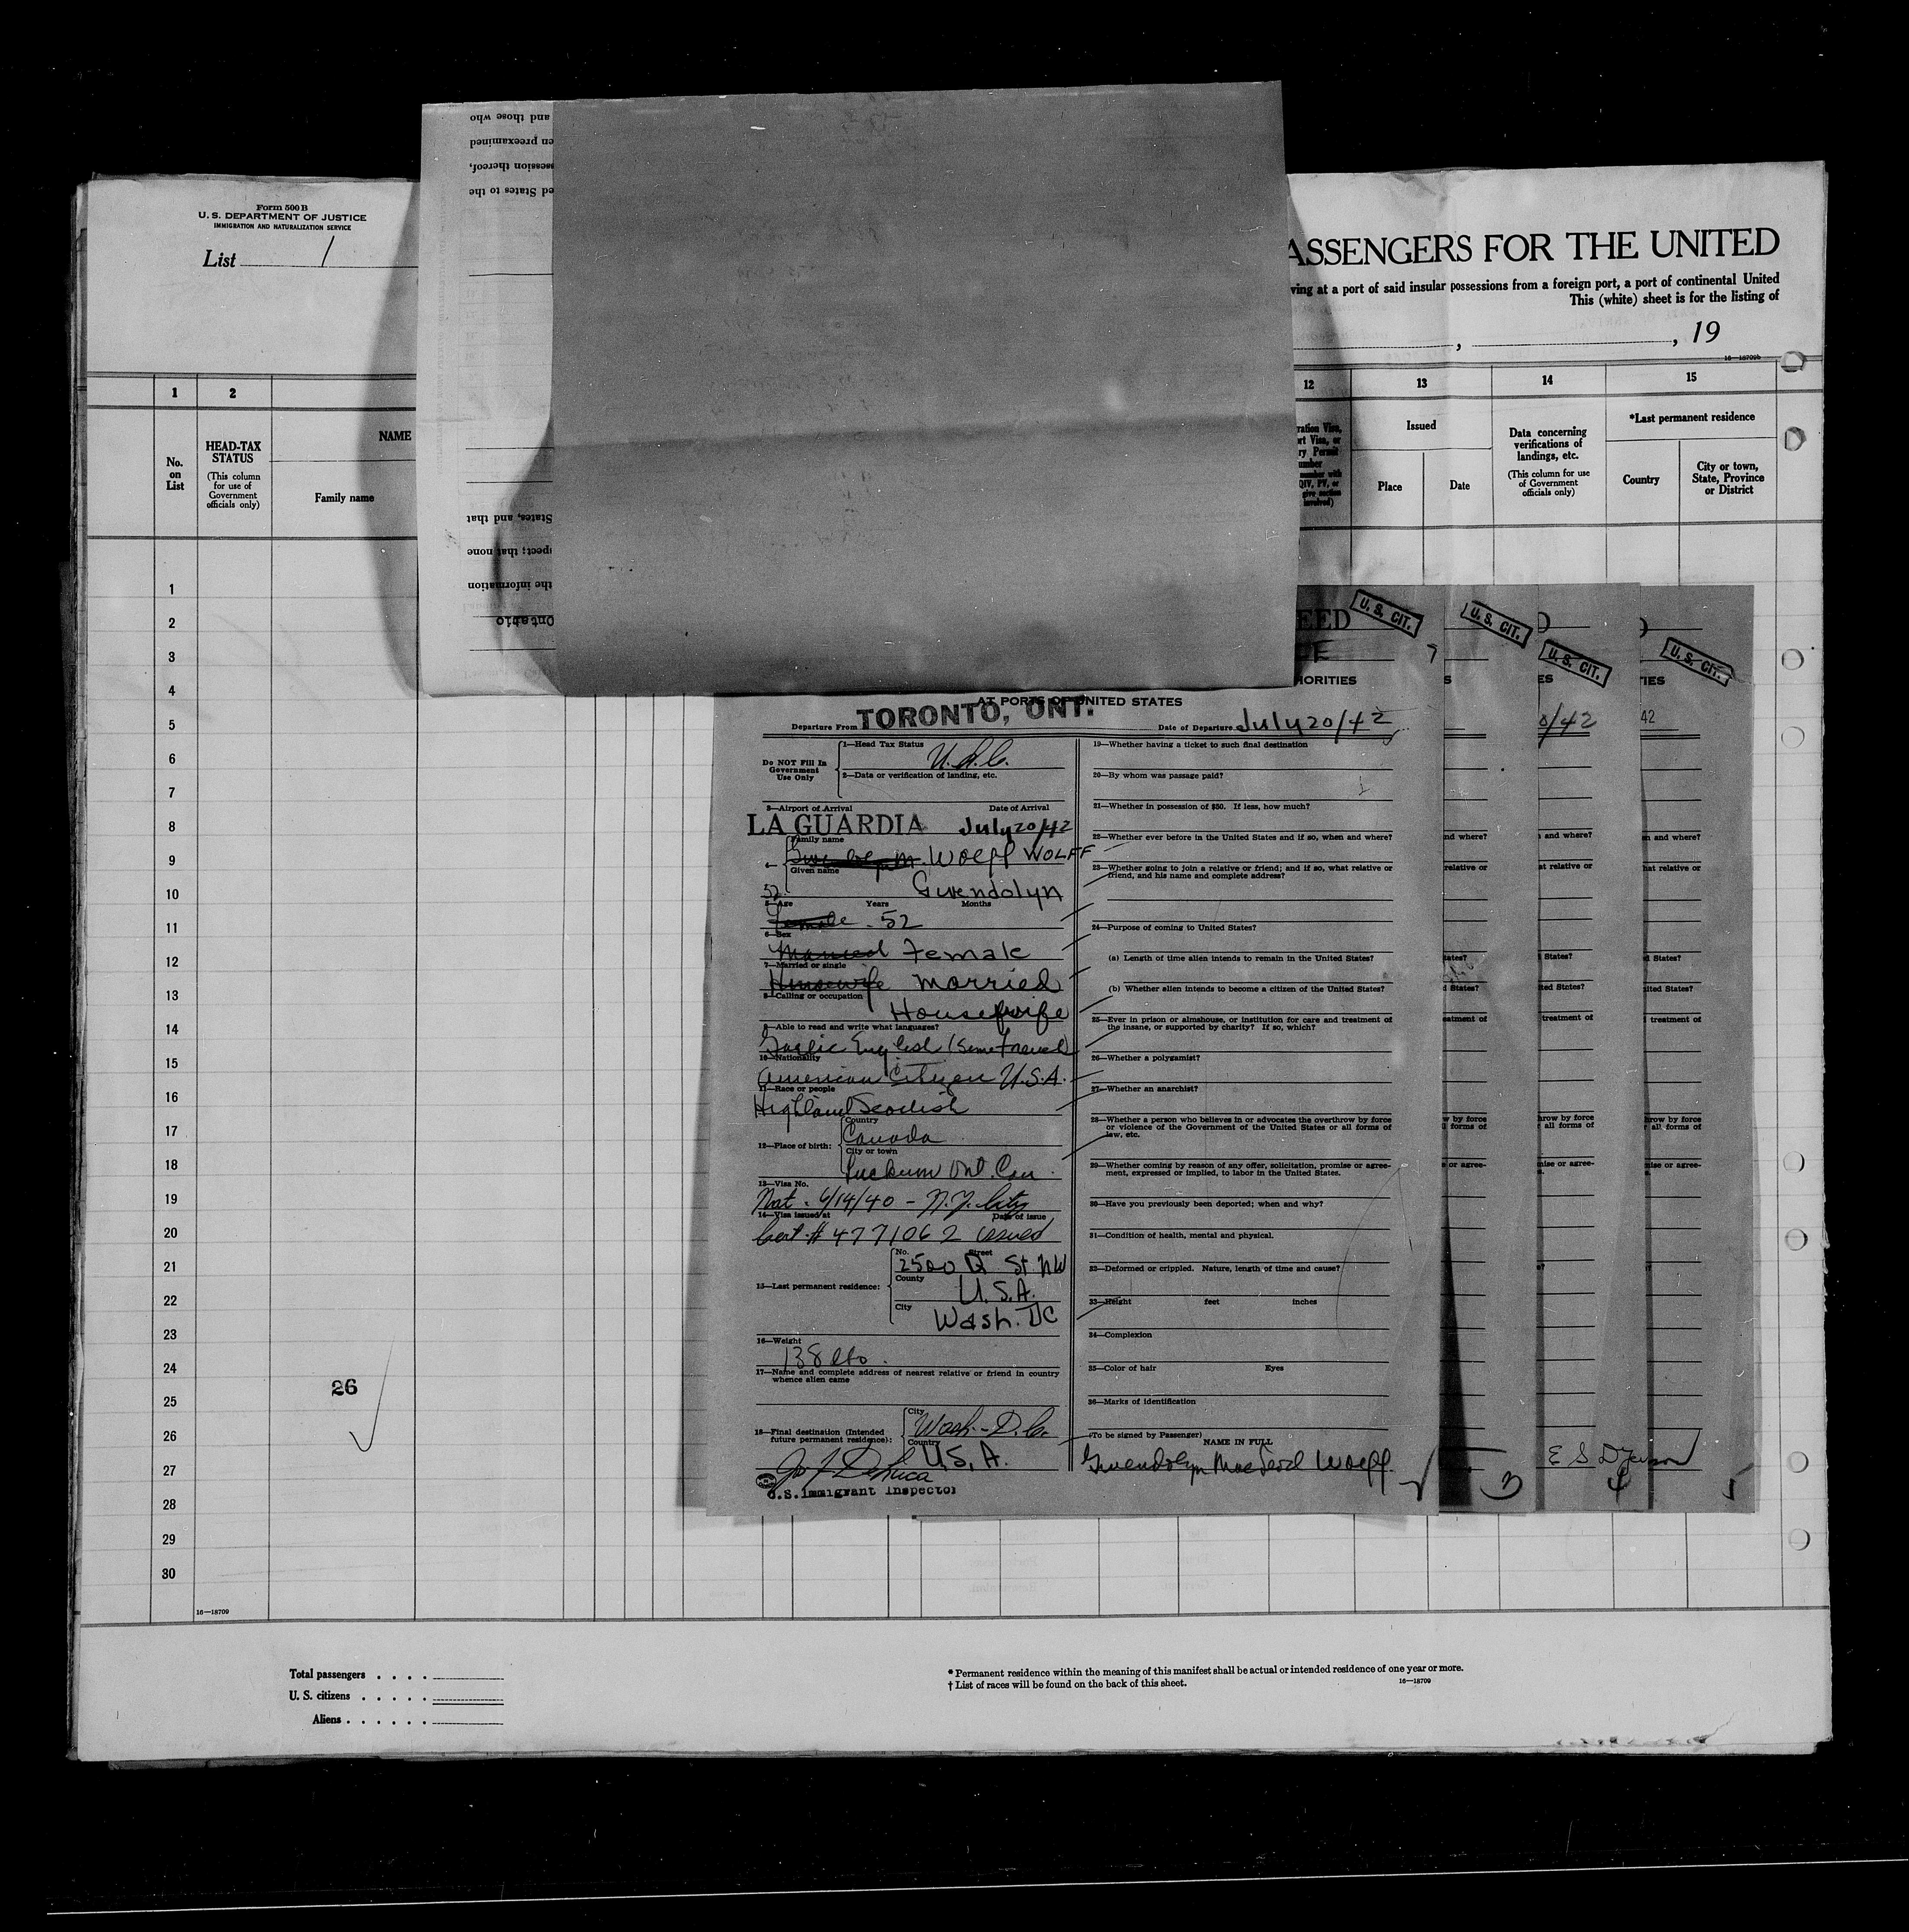 Form 500 B
U. S. DEPARTMENT OF JUSTICE
IMMIGRATION AND NATURALIZATION SERVICE
List 1
and those who
en preexamined
ssession thereof,
ed States to the
States, and that
spect; that none
the information
Ontario
ASSENGERS FOR THE UNITED
ving at a port of said insular possessions from a foreign port, a port of continental United
This (white) sheet is for the listing of
, , 19
16—18709b
1 2 12 13 14 15
No. on List
HEAD-TAX STATUS
(This column for use of Government officials only)
NAME
Family name
Issued
Place Date
Data concerning verifications of landings, etc.
(This column for use of Government officials only)
*Last permanent residence
Country
City or town, State, Province or District
1
2
3
4
5
6
7
8
9
10
11
12
13
14
15
16
17
18
19
20
21
22
23
24
25
26
27
28
29
30
26
16—18709
EED U. S. CIT. U. S. CIT. U. S. CIT. U. S. CIT.
HORITIES
AT PORTS OF UNITED STATES
Departure From TORONTO, ONT.
Date of Departure July 20/42
Do NOT Fill In Government Use Only
1—Head Tax Status U.S.C.
2—Data or verification of landing, etc.
3—Airport of Arrival Date of Arrival
LA GUARDIA July 20/42
Family name
Woolf WOLFF
Given name
52 Gwendolyn
5—Age Years Months
Female 52
6—Sex
Married Female
7—Married or single
Housewife married
8—Calling or occupation
Housewife
9—Able to read and write what languages?
Gaelic English (some French)
10—Nationality
American Citizen U.S.A.
11—Race or people
Highland Scottish
12—Place of birth:
Country
Canada
City or town
Ont. Can.
13—Visa No.
Nat. 6/14/40 - N.Y. City
14—Visa issued at Date of issue
Cert. # 4771062 issued
15—Last permanent residence:
No. Street
2500 Q St NW
County
U.S.A.
City
Wash. DC
16—Weight
138 lbs.
17—Name and complete address of nearest relative or friend in country whence alien came
18—Final destination (Intended future permanent residence):
City
Wash.-D.C.
Country
U.S.A.
U.S. Immigrant Inspector
19—Whether having a ticket to such final destination
20—By whom was passage paid?
21—Whether in possession of $50. If less, how much?
22—Whether ever before in the United States and if so, when and where?
23—Whether going to join a relative or friend; and if so, what relative or friend, and his name and complete address?
24—Purpose of coming to United States?
(a) Length of time alien intends to remain in the United States?
(b) Whether alien intends to become a citizen of the United States?
25—Ever in prison or almshouse, or institution for care and treatment of the insane, or supported by charity? If so, which?
26—Whether a polygamist?
27—Whether an anarchist?
28—Whether a person who believes in or advocates the overthrow by force or violence of the Government of the United States or all forms of law, etc.
29—Whether coming by reason of any offer, solicitation, promise or agreement, expressed or implied, to labor in the United States.
30—Have you previously been deported; when and why?
31—Condition of health, mental and physical.
32—Deformed or crippled. Nature, length of time and cause?
33—Height feet inches
34—Complexion
35—Color of hair Eyes
36—Marks of identification
(To be signed by Passenger)
NAME IN FULL
Gwendolyn MacLeod Woolf
3 4 5
Total passengers . . . .
U. S. citizens . . . . .
Aliens . . . . . .
* Permanent residence within the meaning of this manifest shall be actual or intended residence of one year or more.
† List of races will be found on the back of this sheet.
16—18709